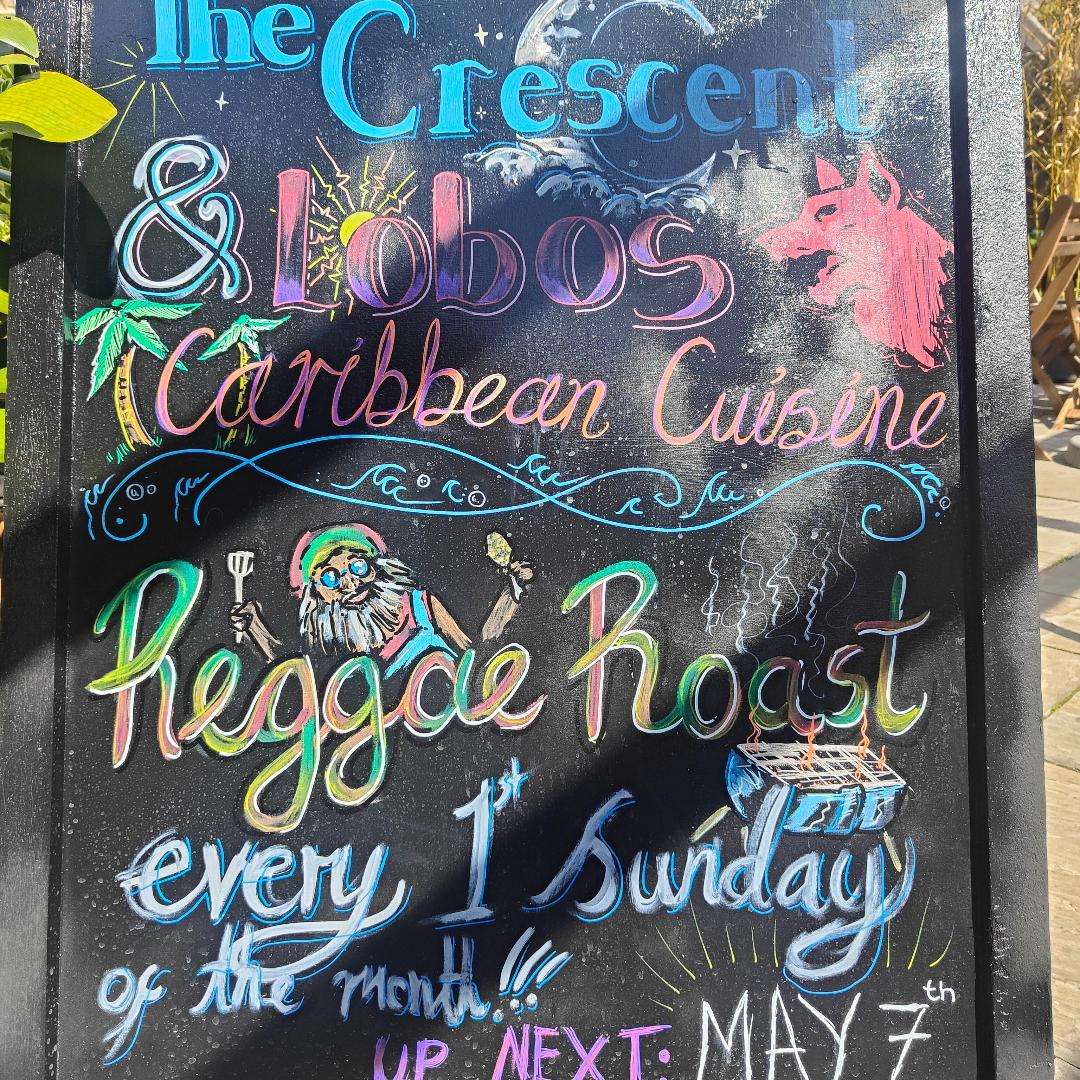 The Crescent
& Lobos
Caribbean Cuisine
Reggae Roast
every 1st Sunday
of the month!!!
UP NEXT: MAY 7th